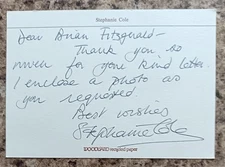 Stephanie Cole
Dear Brian Fitzgerald -
Thank you so
much for your kind letter
I enclose a photo as
you requested
Best wishes
Stephanie Cole
recycled paper